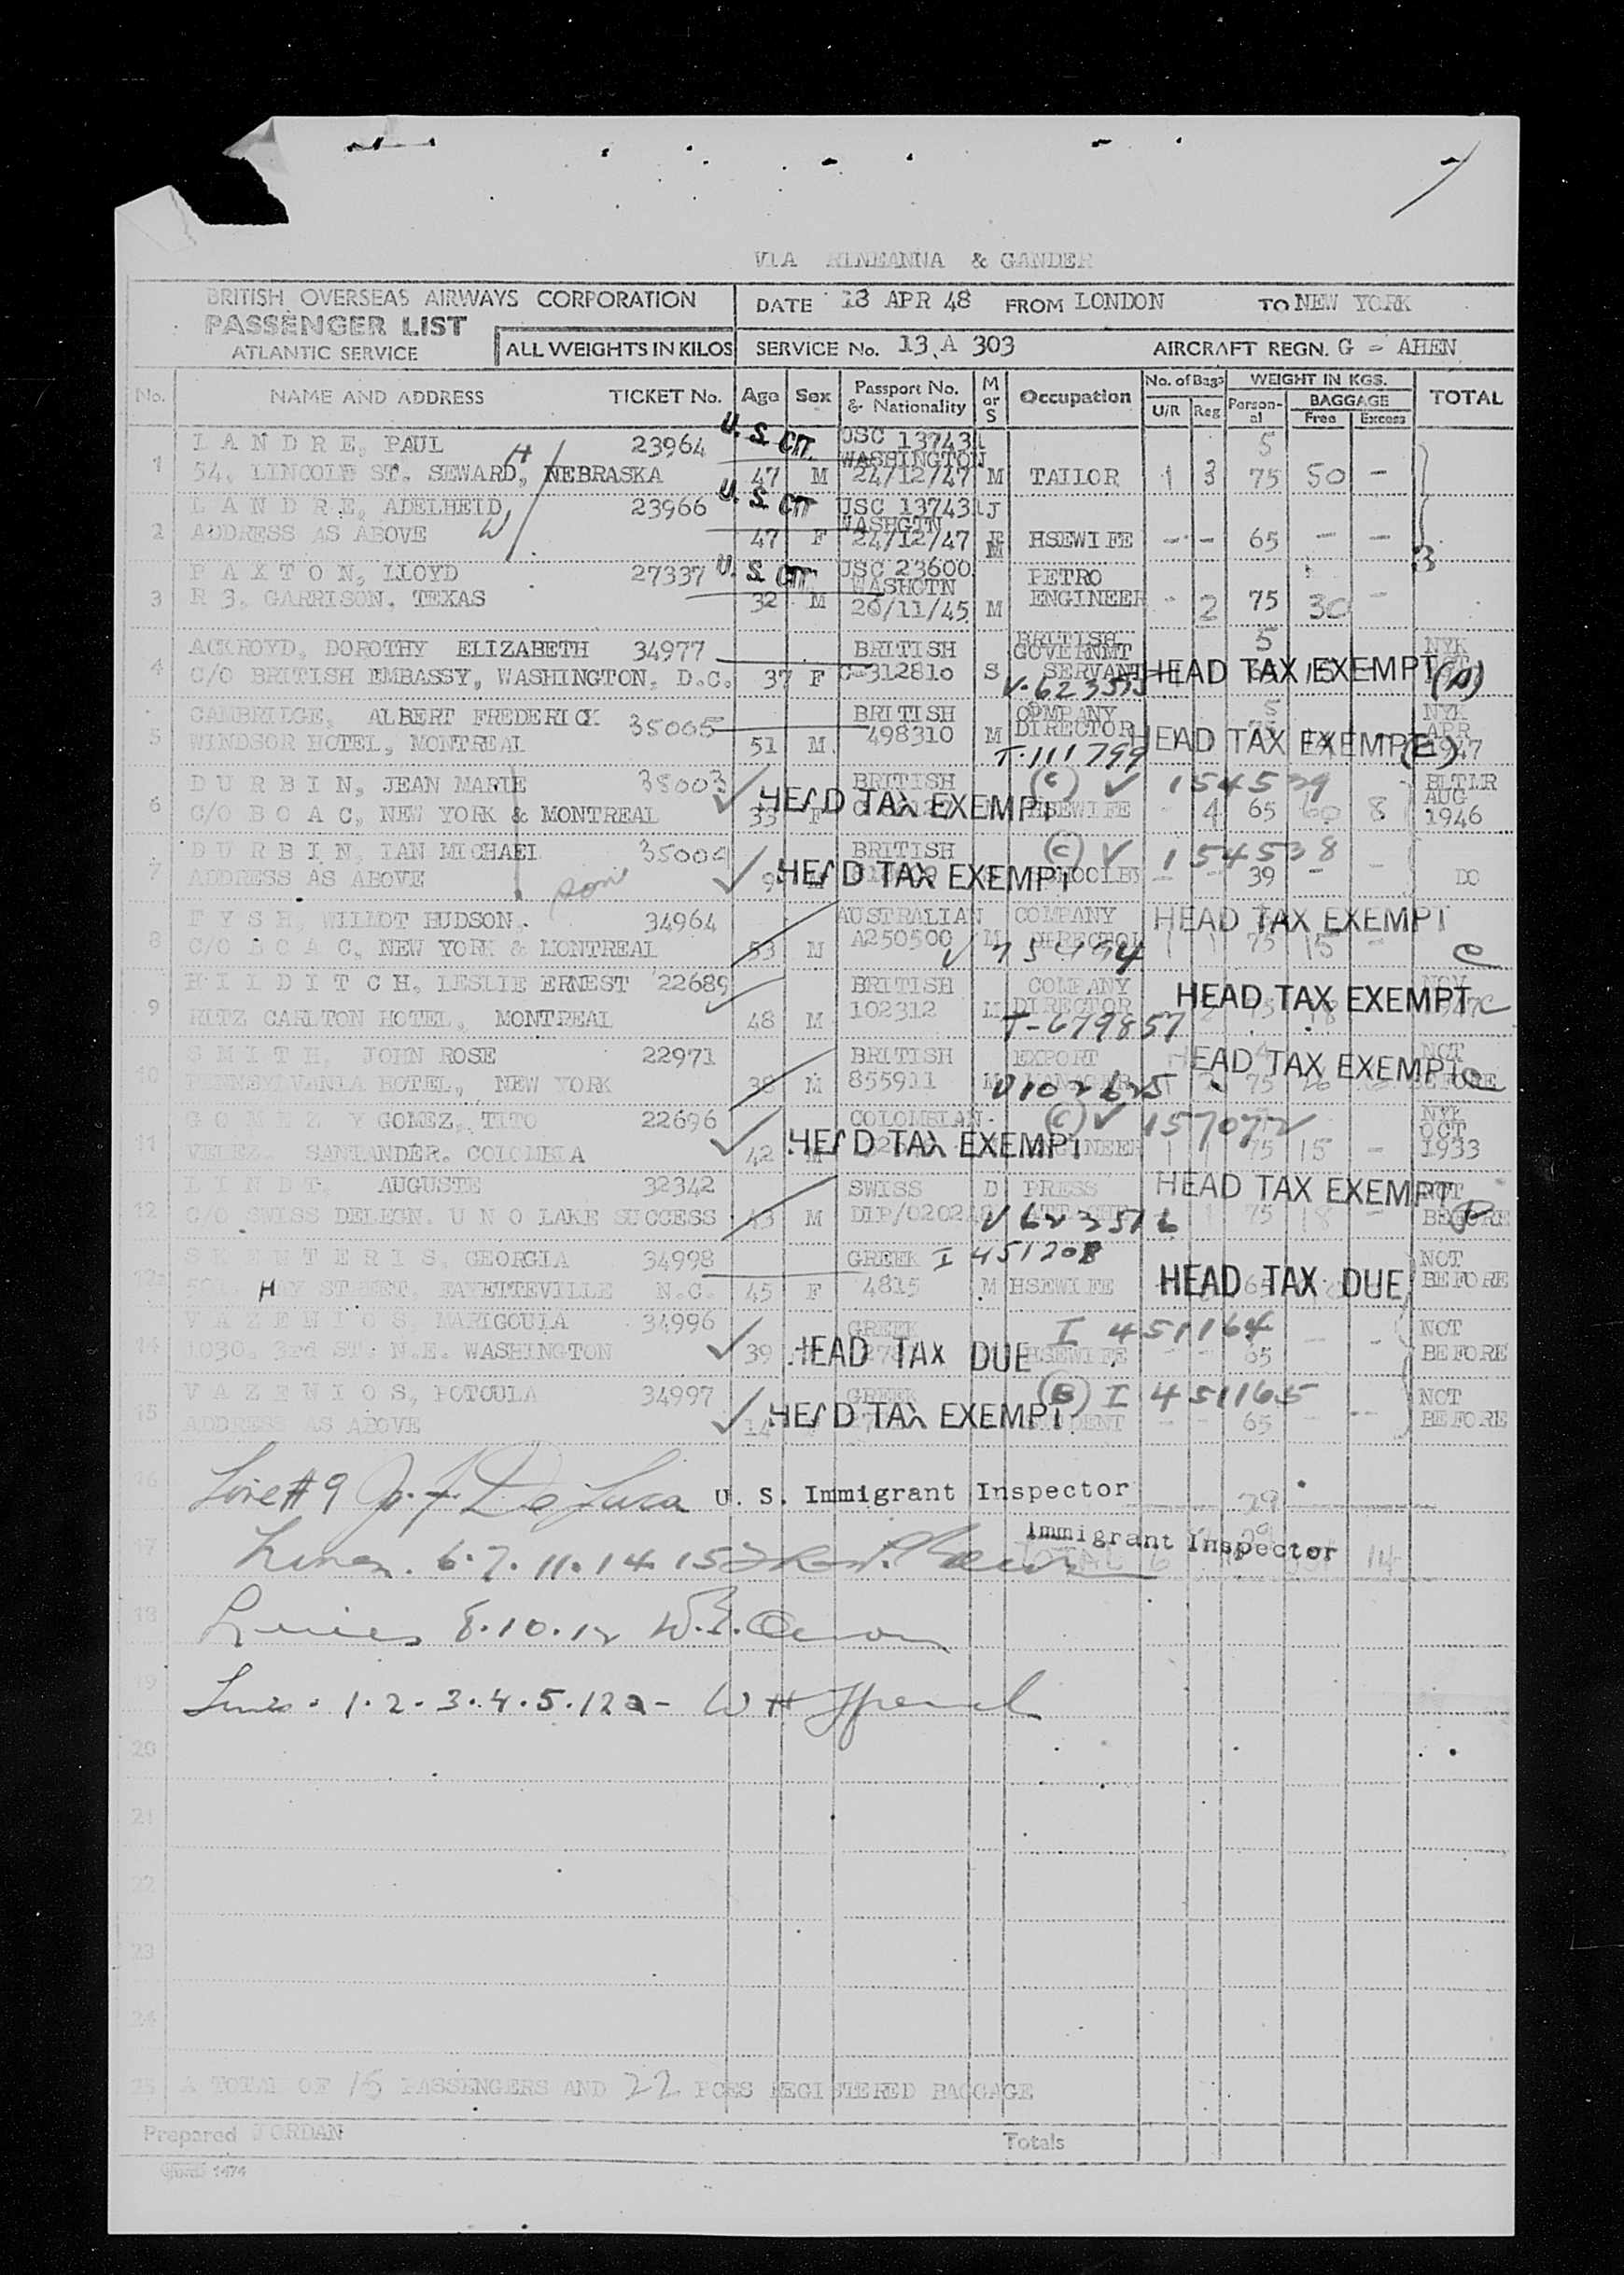 VIA RINEANNA & GANDER
BRITISH OVERSEAS AIRWAYS CORPORATION
PASSENGER LIST
ATLANTIC SERVICE
ALL WEIGHTS IN KILOS
DATE 13 APR 48 FROM LONDON TO NEW YORK
SERVICE No. 13.A 303 AIRCRAFT REGN. G - AHEN
No. NAME AND ADDRESS TICKET No. Age Sex Passport No. & Nationality M or S Occupation No. of Bags U/R Reg WEIGHT IN KGS. Personal BAGGAGE Free Excess TOTAL
L A N D R E, PAUL 23964 U. S. CIT. USC 137431 5
1 54. LINCOLN ST. SEWARD, NEBRASKA H 47 M WASHINGTON 24/12/47 M TAILOR 1 3 75 50 -
L A N D R E, ADELHEID 23966 U. S. CIT USC 137431J
2 ADDRESS AS ABOVE W 47 F WASHGTN 24/12/47 M HSEWIFE - - 65 - -
P A X T O N, LLOYD 27337 U. S. CIT. USC 23600 PETRO
3 R 3, GARRISON. TEXAS 32 M WASHGTN 20/11/45 M ENGINEER - 2 75 30 -
ACKROYD, DOROTHY ELIZABETH 34977 BRITISH BRITISH GOVERNMT 5 NYK
4 C/O BRITISH EMBASSY, WASHINGTON. D.C. 37 F C-312810 S SERVANT HEAD TAX EXEMPT
V-623575
CAMBRIDGE, ALBERT FREDERICK 35005 BRITISH COMPANY 5 NYK
5 WINDSOR HOTEL, MONTREAL 51 M. 498310 M DIRECTOR HEAD TAX EXEMPT APR 1947
T-111799
D U R B I N, JEAN MARIE 35003 BRITISH (C) 154539 BLTLR
6 C/O B O A C, NEW YORK & MONTREAL 33 F HEAD TAX EXEMPT HSEWIFE - 4 65 60 8 AUG 1946
D U R B I N, IAN MICHAEL 35004 BRITISH (C) 154538
7 ADDRESS AS ABOVE son 9 HEAD TAX EXEMPT - - 39 - - DO
F Y S H, WILMOT HUDSON. 34964 AUSTRALIAN COMPANY HEAD TAX EXEMPT
8 C/O B O A C, NEW YORK & MONTREAL 53 M A250500 M DIRECTOR 1 1 75 15 - C
H I L D I T C H, LESLIE ERNEST 22689 BRITISH COMPANY NOV
9 RITZ CARLTON HOTEL, MONTREAL 48 M 102312 M DIRECTOR HEAD TAX EXEMPT C
T-679857
S M I T H, JOHN ROSE 22971 BRITISH EXPORT NOT
10 PENNSYLVANIA HOTEL, NEW YORK 38 M 855911 M MANAGER HEAD TAX EXEMPT BEFORE
V102625
G O M E Z Y GOMEZ, TITO 22696 COLOMBIAN (C) 157072 NYK
11 VELEZ. SANTANDER. COLOMBIA 42 M HEAD TAX EXEMPT ENGINEER 1 1 75 15 - OCT 1933
L I N D T. AUGUSTE 32342 SWISS D PRESS HEAD TAX EXEMPT NOT
12 C/O SWISS DELEGN. U N O LAKE SUCCESS 43 M DIP/0202 V 623516 75 18 - BEFORE
S K E N T E R I S, GEORGIA 34998 GREEK I 451208 NOT
12a HAY STREET. FAYETTEVILLE N.C. 45 F 4815 M HSEWIFE HEAD TAX DUE BEFORE
V A Z E N I O S, MARIGOULA 34996 GREEK I 451164 NOT
14 1030. 3rd ST. N.E. WASHINGTON 39 HEAD TAX DUE HSEWIFE - - 65 - - BEFORE
V A Z E N I O S, FOTOULA 34997 GREEK (B) I 451165 NOT
15 ADDRESS AS ABOVE 14 HEAD TAX EXEMPT STUDENT - - 65 - - BEFORE
16 Line #9 J. F. De Luca U. S. Immigrant Inspector 29
17 Lines. 6.7.11.14 15 Immigrant Inspector TOTAL 14
18 Lines 8.10.12
19 Lines. 1.2.3.4.5.12a-
20
21
22
23
24
25 A TOTAL OF 15 PASSENGERS AND 22 PCES REGISTERED BAGGAGE
Prepared JORDAN Totals
1474